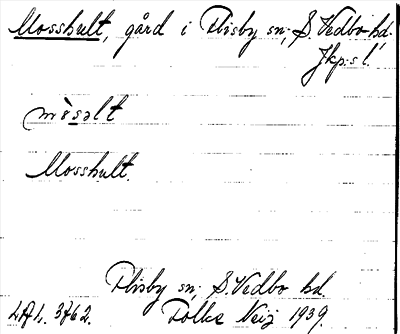 Mosshult, gård i Flisby sn; S. Vedbo hd.
Jkp:s l.
mòsəlt
Mosshult.
Flisby sn, S. Vedbo hd.
ULMA 3762. Folke Neij 1939.